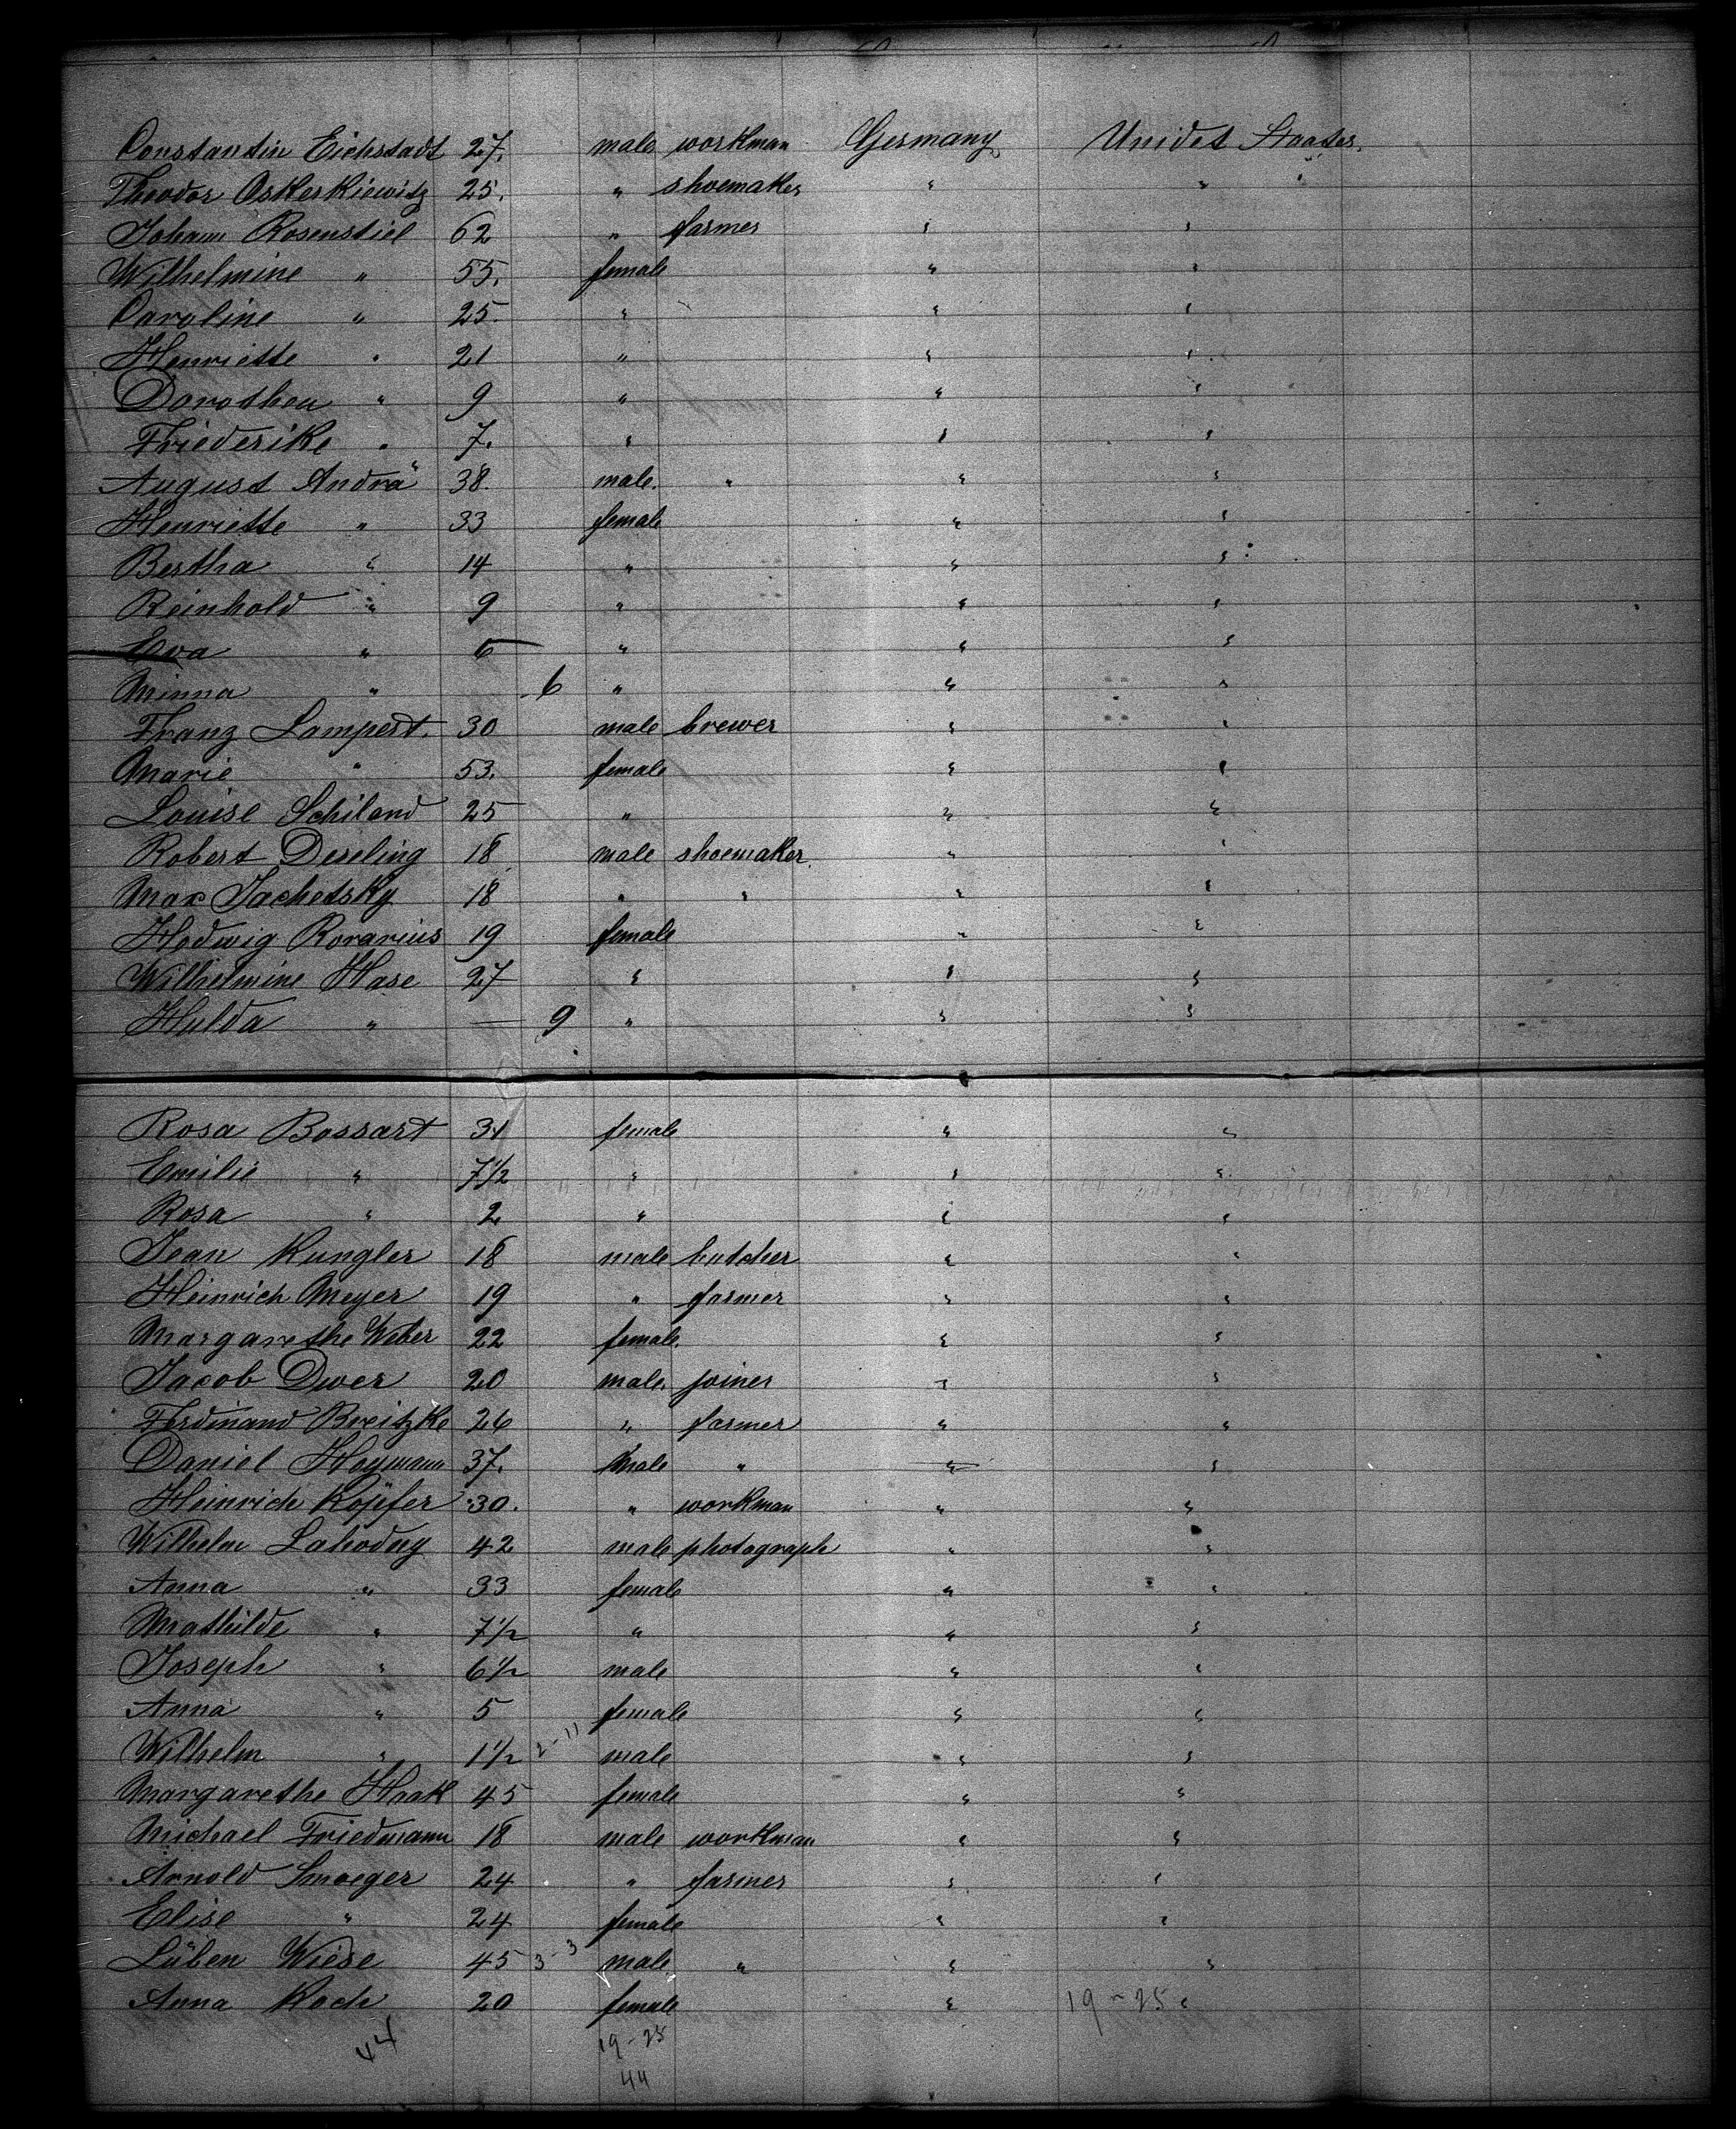 Constantin Eichstadt 27. male workman Germany Unidet Staates.
Theodor Oskerkiewitz 25. " shoemaker " "
Johann Rosenstiel 62 " farmer " "
Wilhelmine " 55. female " "
Caroline " 25. " " "
Henriette " 21 " " "
Dorothea " 9 " " "
Friederike " 7. " " "
August Andrä 38. male. " " "
Henriette " 33 female " "
Bertha " 14 " " "
Reinhold " 9 " " "
Eva " 6 " " "
Minna " 6 " " "
Franz Lampert. 30 male brewer " "
Marie " 53. female " "
Louise Schiland 25 " " "
Robert Deseling 18 male shoemaker. " "
Max Jachetsky 18 " " " "
Hedwig Rorarius 19 female " "
Wilhelmine Hase 27 " " "
Hulda " — 9 " " "
Rosa Bossart 31 female " "
Emilie " 7½ " " "
Rosa " 2 " " "
Jean Kungler 18 male butcher " "
Heinrich Meyer 19 " farmer " "
Margarethe Weber 22 female. " "
Jacob Dwer 20 male. joiner " "
Ferdinand Breitzke 26 " farmer " "
Daniel Heymann 37. male " " "
Heinrich Köpfer 30. " workman " "
Wilhelm Lahodny 42 male photograph " "
Anna " 33 female " "
Mathilde " 7½ " " "
Joseph " 6½ male " "
Anna " 5 female " "
Wilhelm " 1½ 2-11 male " "
Margarethe Haak 45 female " "
Michael Friedmann 18 male workman " "
Arnold Smoeger 24 " farmer " "
Elise " 24 female " "
Lüben Wiese 45 3-3 male " " "
Anna Koch 20 female " 19-25 "
44 19-25
44